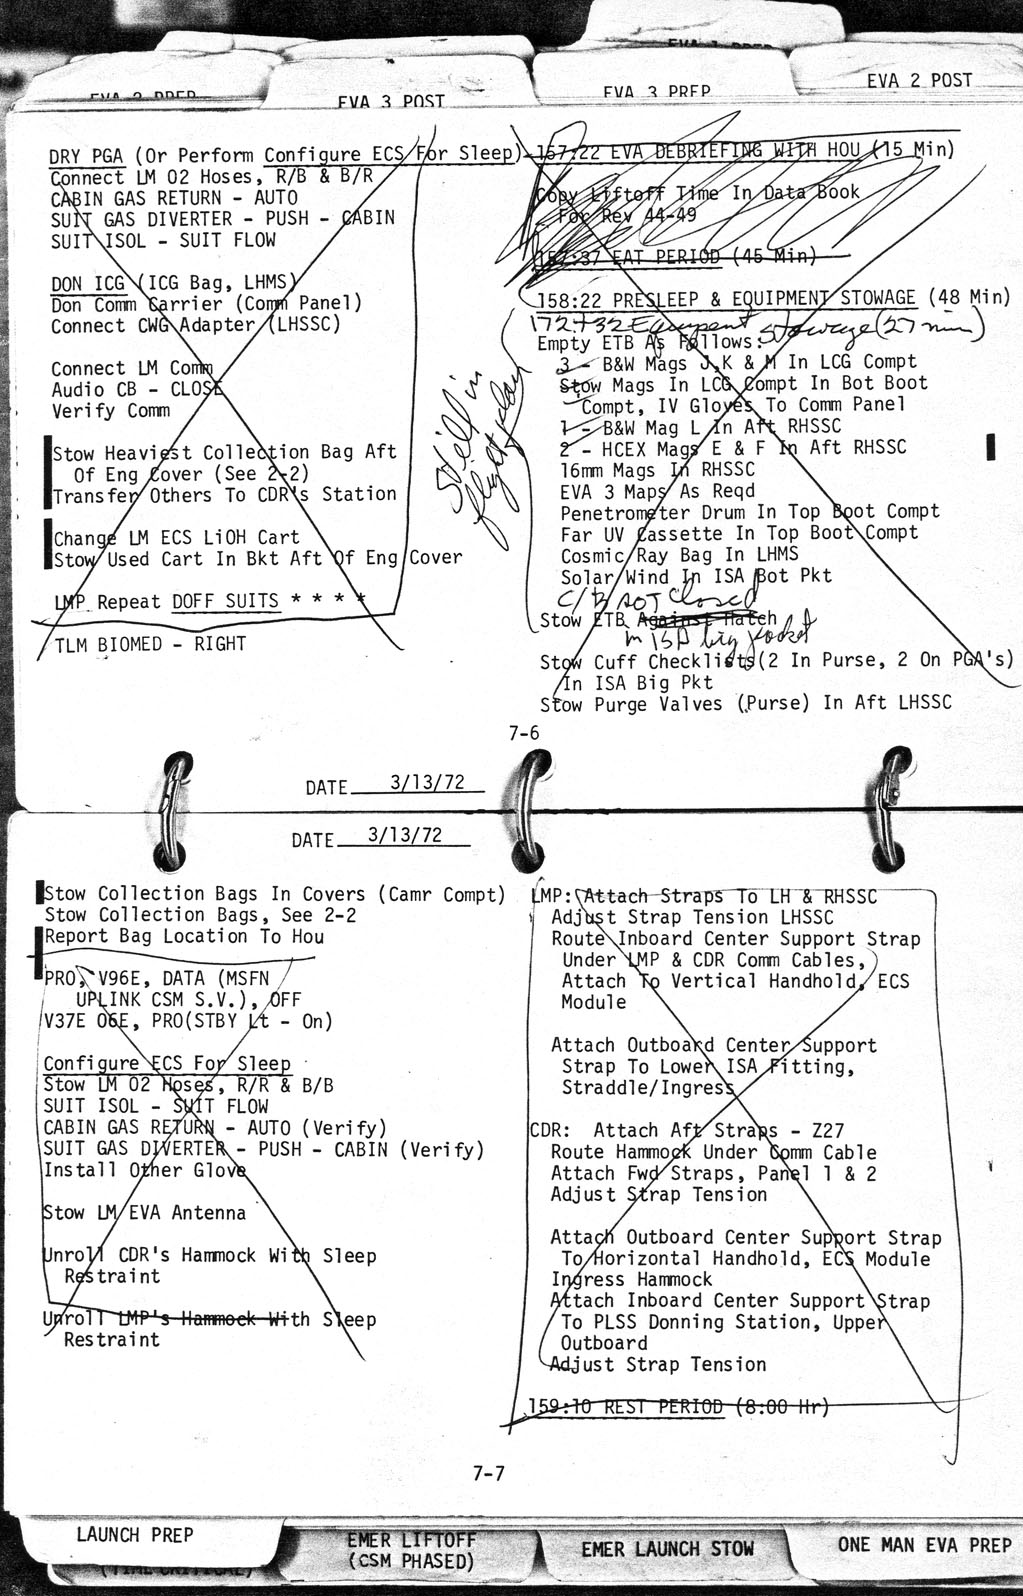 EVA 2 PREP
EVA 3 POST
EVA 3 PREP
EVA 2 POST
DRY PGA (Or Perform Configure ECS For Sleep)
Connect LM O2 Hoses, R/B & B/R
CABIN GAS RETURN - AUTO
SUIT GAS DIVERTER - PUSH - CABIN
SUIT ISOL - SUIT FLOW
DON ICG (ICG Bag, LHMS)
Don Comm Carrier (Comm Panel)
Connect CWG Adapter (LHSSC)
Connect LM Comm
Audio CB - CLOSE
Verify Comm
Stow Heaviest Collection Bag Aft
Of Eng Cover (See 2-2)
Transfer Others To CDR's Station
Change LM ECS LiOH Cart
Stow Used Cart In Bkt Aft Of Eng Cover
LMP Repeat DOFF SUITS * * * *
TLM BIOMED - RIGHT
157:22 EVA DEBRIEFING WITH HOU (15 Min)
Copy Liftoff Time In Data Book
For Rev 44-49
157:37 EAT PERIOD (45 Min)
158:22 PRESLEEP & EQUIPMENT STOWAGE (48 Min)
172+32 Equipment Stowage (27 min)
Empty ETB As Follows:
3 - B&W Mags J,K & M In LCG Compt
Stow Mags In LCG Compt In Bot Boot
Compt, IV Gloves To Comm Panel
1 - B&W Mag L In Aft RHSSC
2 - HCEX Mags E & F In Aft RHSSC
16mm Mags In RHSSC
EVA 3 Maps As Reqd
Penetrometer Drum In Top Boot Compt
Far UV Cassette In Top Boot Compt
Cosmic Ray Bag In LHMS
Solar Wind In ISA Bot Pkt
C/B NOT closed
Stow ETB Against Hatch
in ISA big pocket
Stow Cuff Checklists(2 In Purse, 2 On PGA's)
In ISA Big Pkt
Stow Purge Valves (Purse) In Aft LHSSC
still in
flight plan
7-6
DATE 3/13/72
DATE 3/13/72
Stow Collection Bags In Covers (Camr Compt)
Stow Collection Bags, See 2-2
Report Bag Location To Hou
PRO, V96E, DATA (MSFN
UPLINK CSM S.V.), OFF
V37E 06E, PRO(STBY Lt - On)
Configure ECS For Sleep
Stow LM O2 Hoses, R/R & B/B
SUIT ISOL - SUIT FLOW
CABIN GAS RETURN - AUTO (Verify)
SUIT GAS DIVERTER - PUSH - CABIN (Verify)
Install Other Glove
Stow LM EVA Antenna
Unroll CDR's Hammock With Sleep
Restraint
Unroll LMP's Hammock With Sleep
Restraint
LMP: Attach Straps To LH & RHSSC
Adjust Strap Tension LHSSC
Route Inboard Center Support Strap
Under LMP & CDR Comm Cables,
Attach To Vertical Handhold, ECS
Module
Attach Outboard Center Support
Strap To Lower ISA Fitting,
Straddle/Ingress
CDR: Attach Aft Straps - Z27
Route Hammock Under Comm Cable
Attach Fwd Straps, Panel 1 & 2
Adjust Strap Tension
Attach Outboard Center Support Strap
To Horizontal Handhold, ECS Module
Ingress Hammock
Attach Inboard Center Support Strap
To PLSS Donning Station, Upper
Outboard
Adjust Strap Tension
159:10 REST PERIOD (8:00 Hr)
7-7
LAUNCH PREP
EMER LIFTOFF
(CSM PHASED)
EMER LAUNCH STOW
ONE MAN EVA PREP
(TIME CRITICAL)